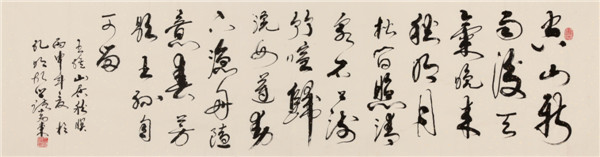 空山新
雨後天
氣晚來
秋明月
松間照清
泉石上流
竹喧歸
浣女蓮動
下漁舟隨
意春芳
歇王孫自
可留
王維山居秋暝
丙申年夏於